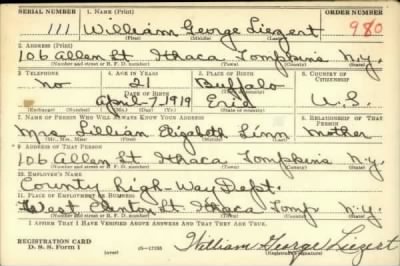 SERIAL NUMBER 1. NAME (Print) ORDER NUMBER
111 William George Liegert 980
(First) (Middle) (Last)
2. ADDRESS (Print)
106 Allen St. Ithaca Tompkins N.y.
(Number and street or R. F. D. number) (Town) (County) (State)
3. TELEPHONE 4. AGE IN YEARS 5. PLACE OF BIRTH 6. COUNTRY OF CITIZENSHIP
no 21 Buffalo
DATE OF BIRTH
April-7, 1919 Erie U.S.
(Exchange) (Number) (Mo.) (Day) (Yr.) (State or country)
7. NAME OF PERSON WHO WILL ALWAYS KNOW YOUR ADDRESS 8. RELATIONSHIP OF THAT PERSON
Mrs. Lillian Elizabeth Linn Mother
(Mr., Mrs., Miss) (First) (Middle) (Last)
9. ADDRESS OF THAT PERSON
106 Allen St Ithaca Tompkins n.y.
(Number and street or R. F. D. number) (Town) (County) (State)
10. EMPLOYER'S NAME
County high-Way Dept.
11. PLACE OF EMPLOYMENT OR BUSINESS
West Clinton St. Ithaca Tomp n.y.
(Number and street or R. F. D. number) (Town) (County) (State)
I AFFIRM THAT I HAVE VERIFIED ABOVE ANSWERS AND THAT THEY ARE TRUE.
REGISTRATION CARD
D. S. S. Form 1 (over) William George Liegert
(Registrant's signature)